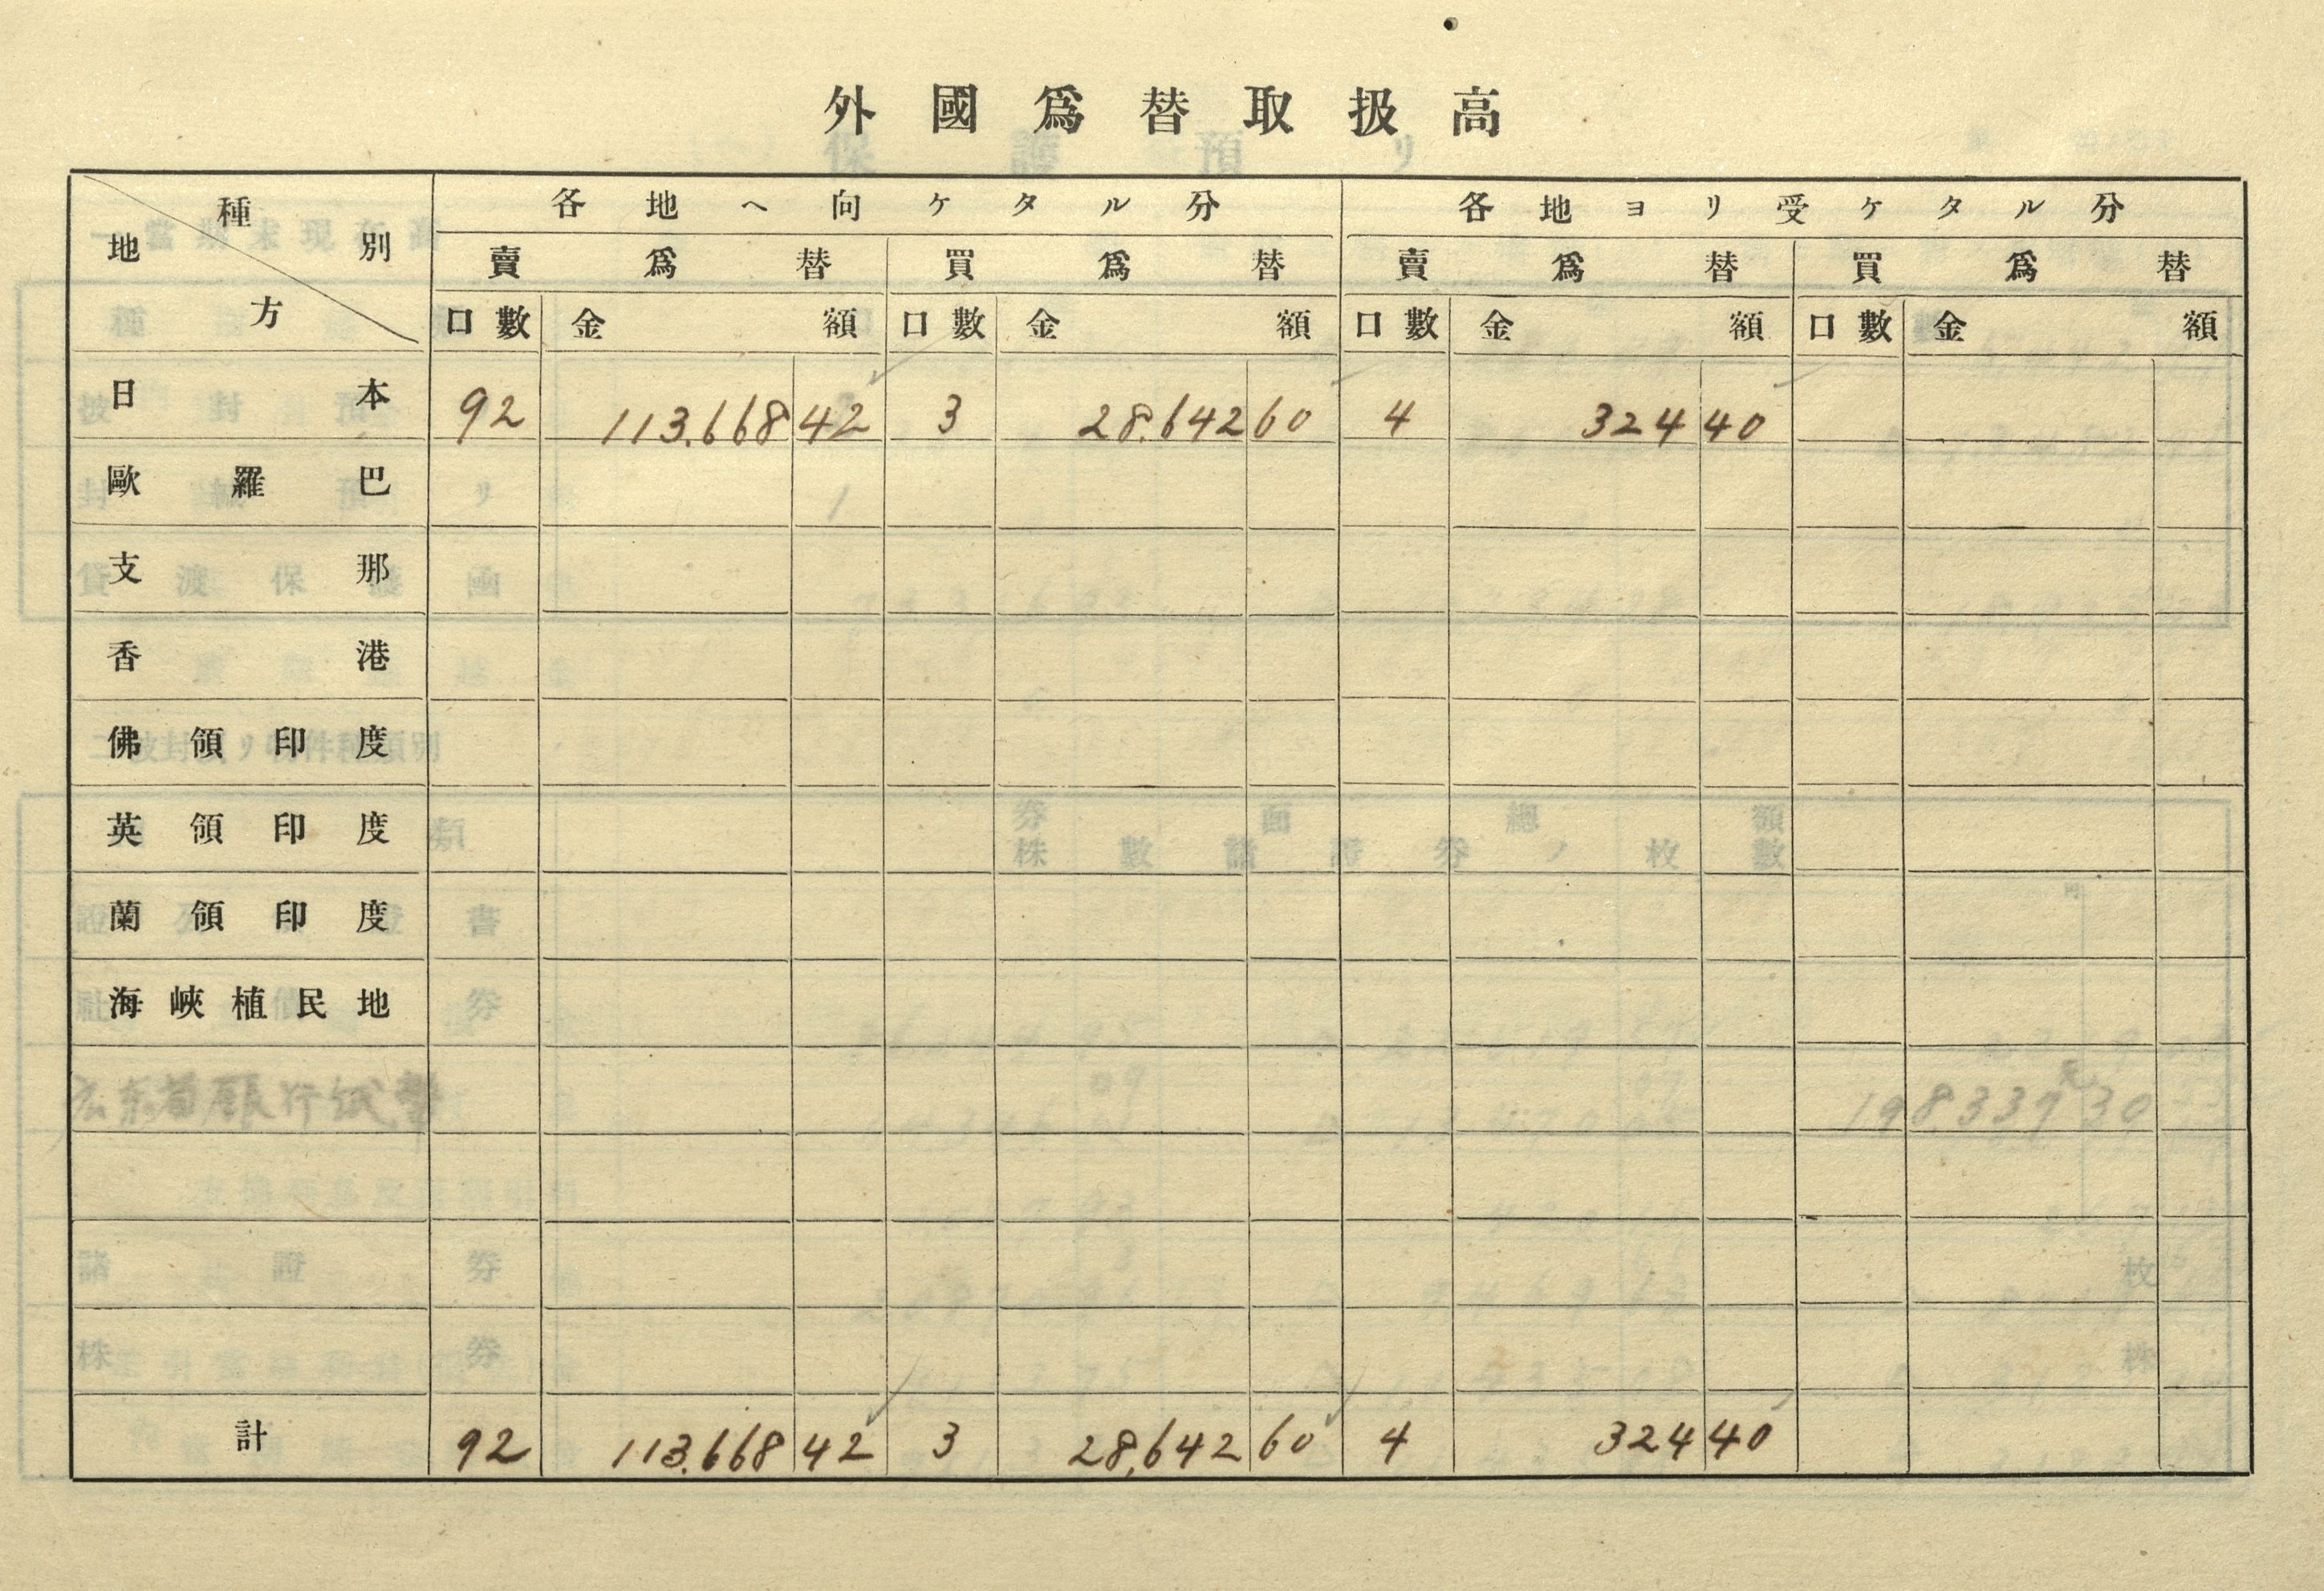 外國爲替取扱高
種別 地方 各地ヘ向ケタル分 各地ヨリ受ケタル分
賣爲替 買爲替 賣爲替 買爲替
口數 金額 口數 金額 口數 金額 口數 金額
日本 92 113.668 42 3 28.642 60 4 324 40
歐羅巴
支那
香港
佛領印度
英領印度
蘭領印度
海峽植民地
198.339 30
計 92 113.668 42 3 28.642 60 4 324 40